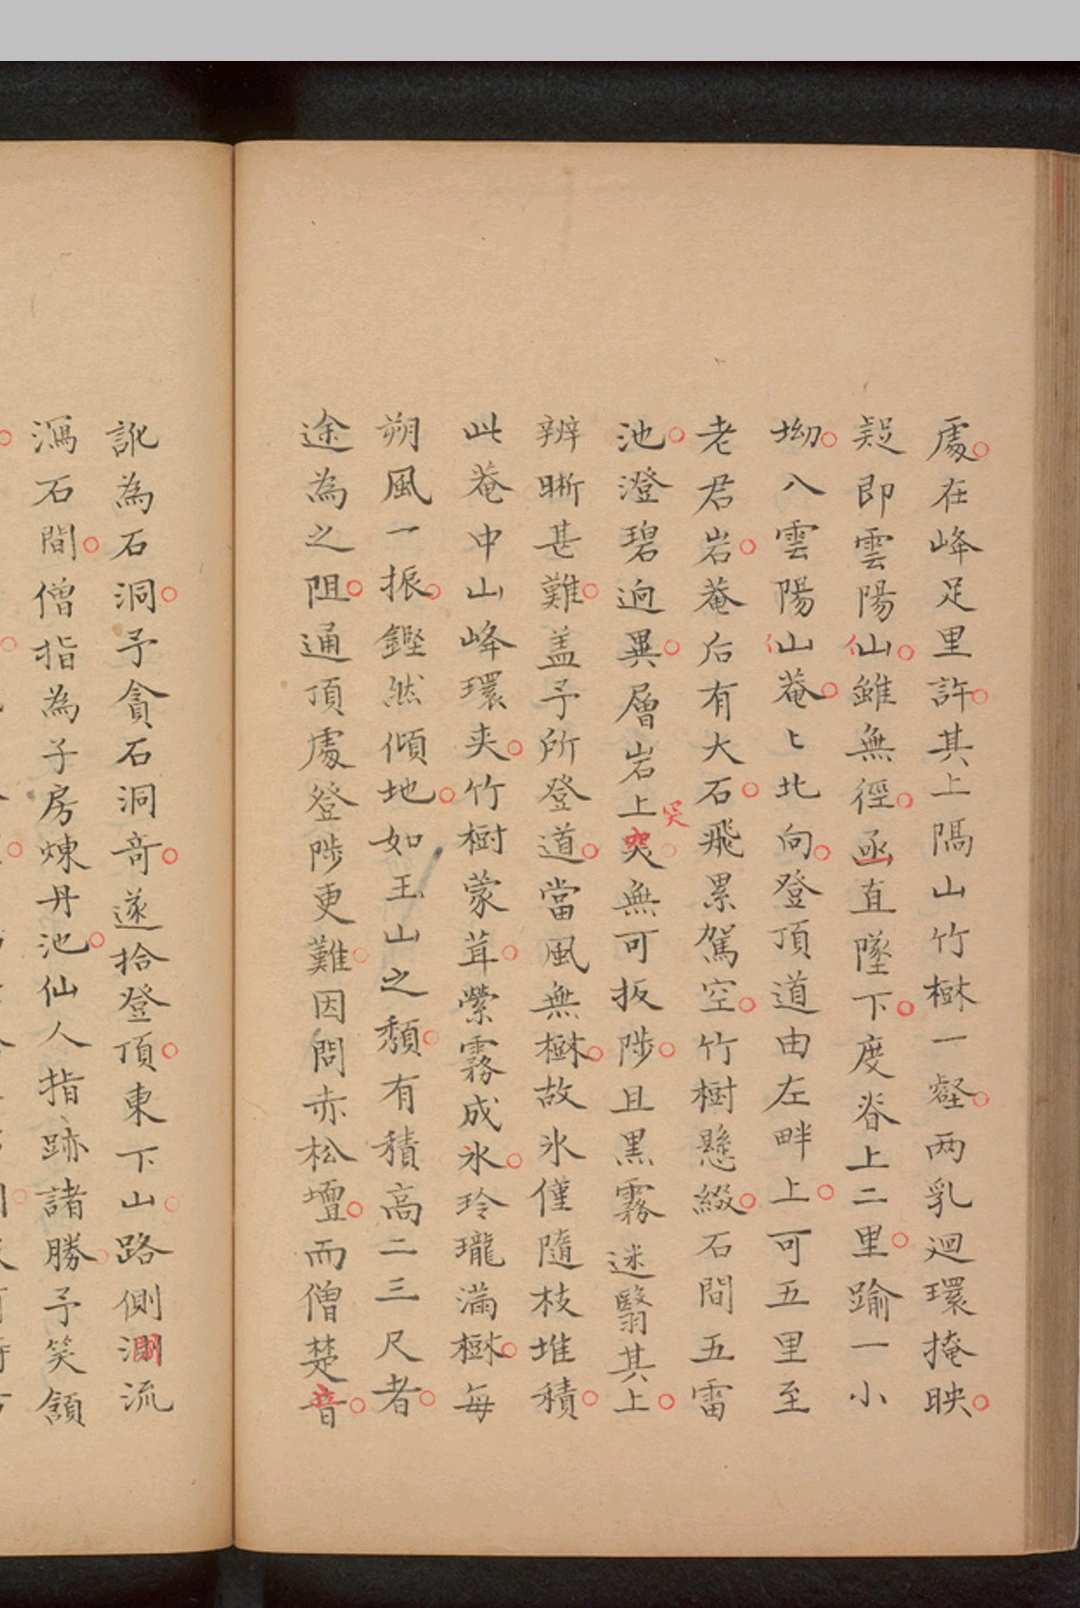 處在峰足里許其上隔山竹樹一壑两乳迴環掩映
疑即雲陽仙雖無徑亟直墜下度脊上二里踰一小
坳八雲陽仙菴〻北向登頂道由左畔上可五里至
老君岩菴后有大石飛累駕空竹樹懸綴石間五雷
池澄碧逈異層岩上突無可扳陟且黒霧迷翳其上
辨晰甚難盖予所登道當風無樹故氷僅隨枝堆積
此菴中山峰環夾竹樹蒙茸縈霧成氷玲瓏滿樹每
朔風一振鏗然傾地如玉山之頽有積高二三尺者
途為之阻通頂處登陟更難因問赤松壇而僧楚音
訛為石洞予貪石洞奇遂拾登頂東下山路側澗流
瀉石間僧指為子房煉丹池仙人指跡諸勝予笑頷